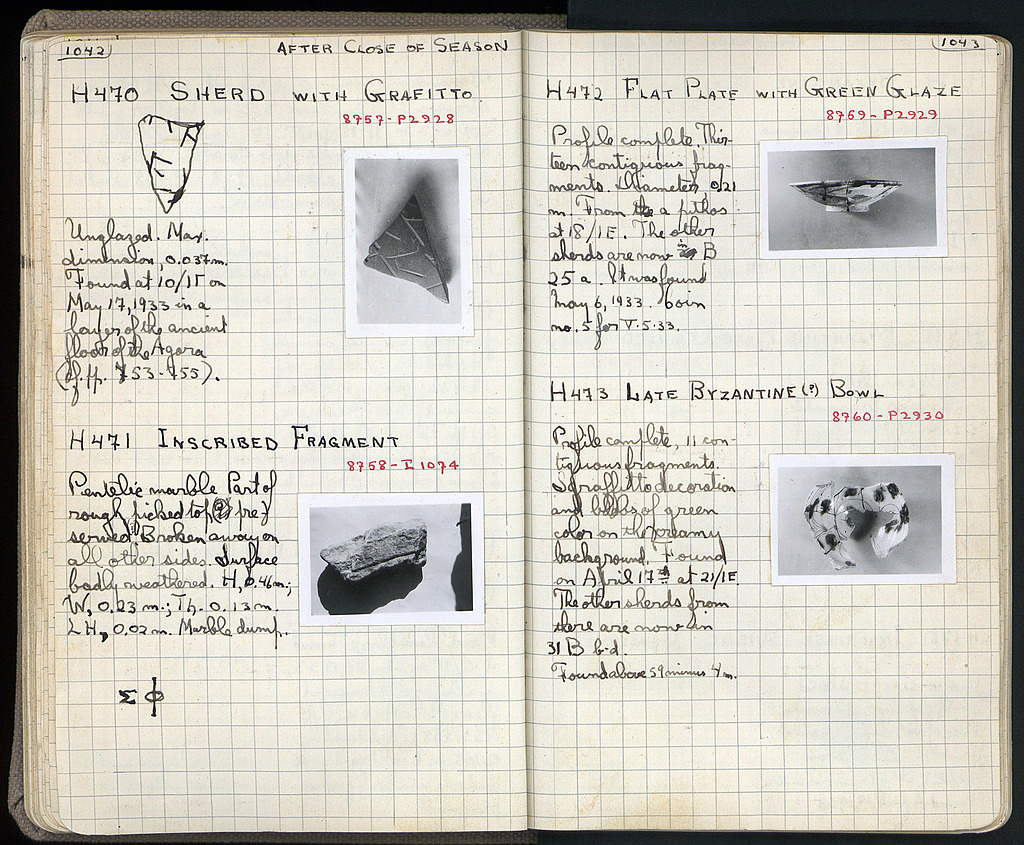 1042
AFTER CLOSE OF SEASON
H470 SHERD WITH GRAFITTO
8757-P2928
Unglazed. Max.
dimension, 0.037m.
Found at 10/IΓ on
May 17, 1933 in a
layer of the ancient
floor of the Agora
(cf. pp. 753-755).
H471 INSCRIBED FRAGMENT
8758-I 1074
Pentelic marble Part of
rough picked top (?) pre-
served. Broken away on
all other sides. Surface
badly weathered. H, 0.46m;
W, 0.23 m.; Th. 0.13 m.
LH, 0.02 m. Marble dump.
Σ ϕ
1043
H472 FLAT PLATE WITH GREEN GLAZE
8759-P2929
Profile complete. Thir-
teen contiguous frag-
ments. Diameter, 0.21
m. From a pithos
at 18/IE. The other
sherds are now in B
25 a. It was found
May 6, 1933. Coin
no. 5 for V.5.33.
H473 LATE BYZANTINE (?) BOWL
8760-P2930
Profile complete, 11 con-
tiguous fragments.
Sgraffitto decoration
and blobs of green
color on the creamy
background. Found
on April 17th at 21/IE
The other sherds from
there are now in
31 B b-d.
Found above 59 minus 4 m.